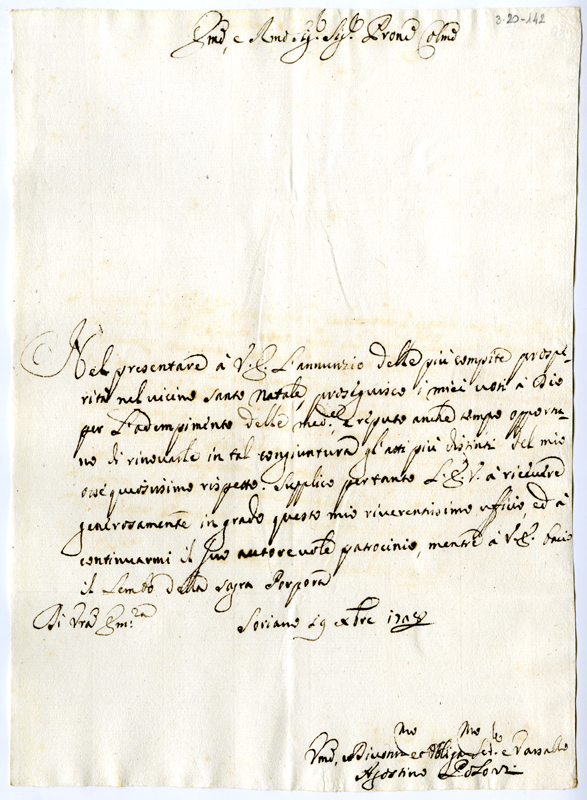 3-20-142
Em.o e Rmo Sig.r Sig.r Prone Colmo
Nel presentare à V. E. l'annunzio delle più compite prospe-
rità nel vicino Santo Natale, proseguisco i miei voti à Dio
per l'adempimento delle med.e, e reputo anche tempo opportu-
no di rinovarle in tal congiuntura gl'atti più distinti del mio
ossequiosissimo rispetto. Supplico per tanto l'E. V. à ricevere
generosamente in grado questo mio riverentissimo uffizio, ed à
continuarmi il suo autorevole patrocinio, mentre à V. E. bacio
il Lembo della Sagra Porpora
Di Vra Em.za
Soriano 19 Xbre
Um.o Divotmo et Obligmo Sed.e e Vassallo
Agostino